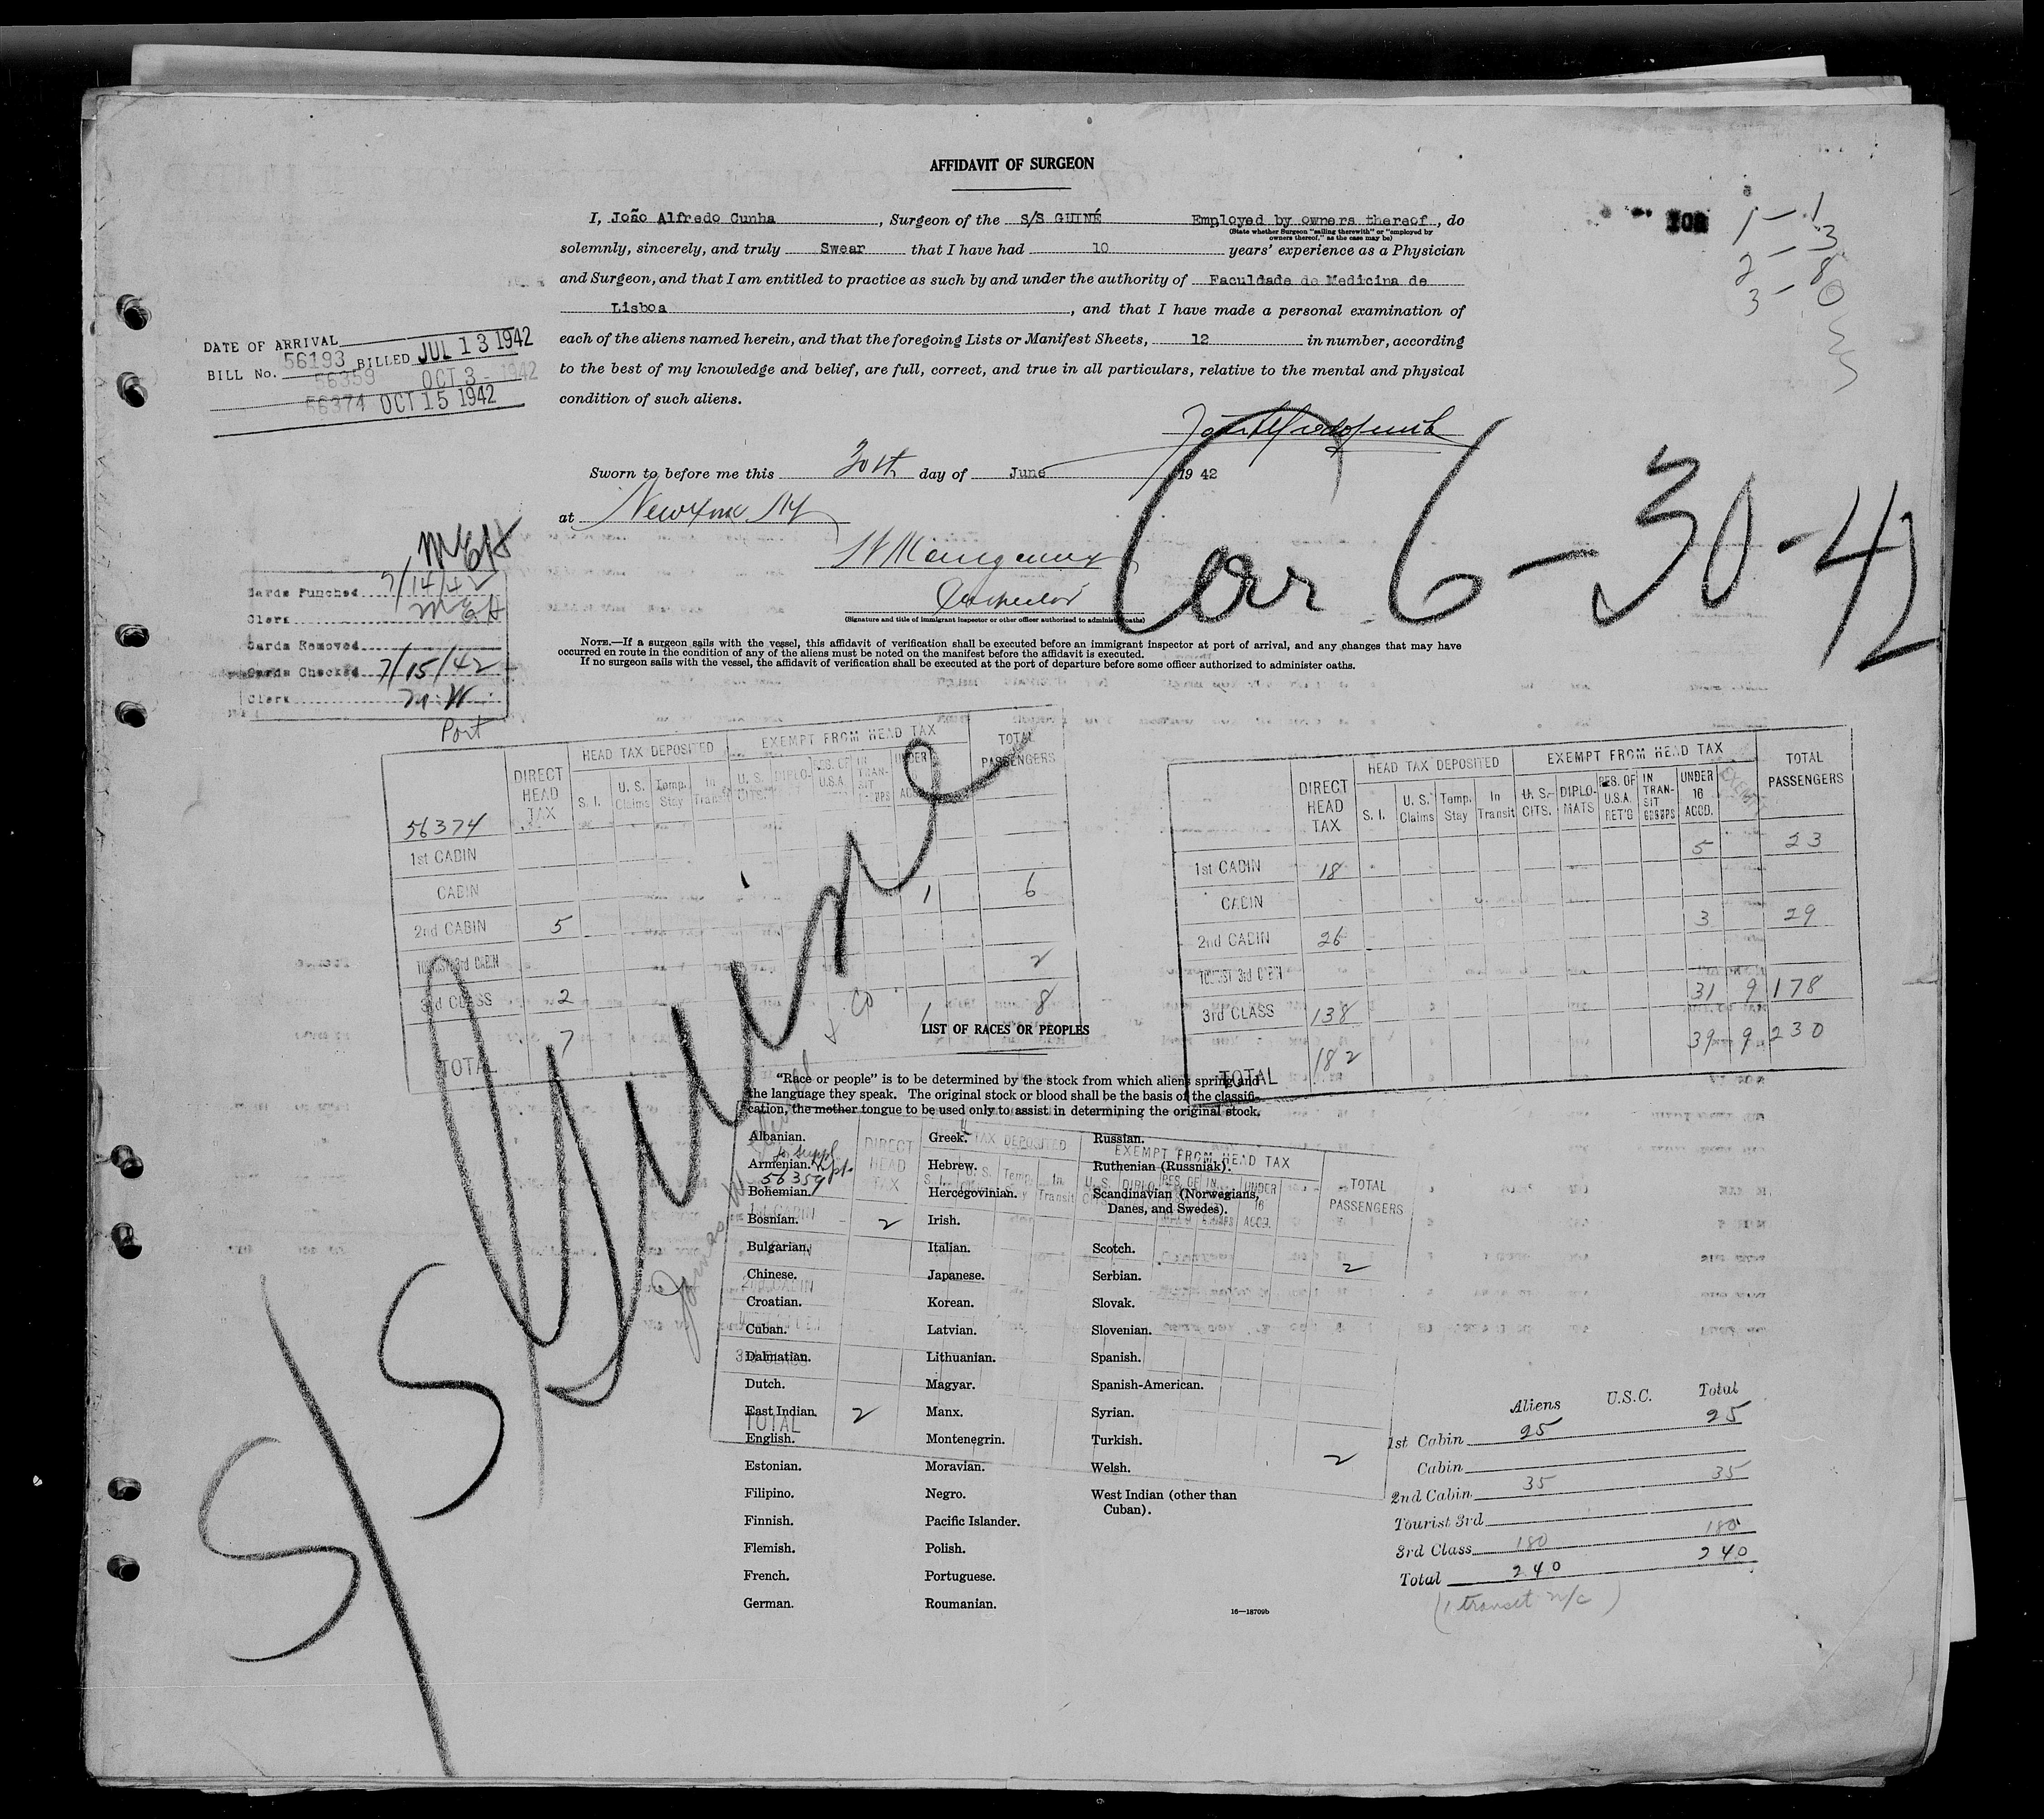 AFFIDAVIT OF SURGEON
I, João Alfredo Cunha, Surgeon of the S/S GUINÉ Employed by owners thereof, do
(State whether Surgeon "sailing therewith" or "employed by
owners thereof," as the case may be)
solemnly, sincerely, and truly Swear that I have had 10 years' experience as a Physician
and Surgeon, and that I am entitled to practice as such by and under the authority of Faculdade de Medicina de
Lisboa, and that I have made a personal examination of
each of the aliens named herein, and that the foregoing Lists or Manifest Sheets, 12 in number, according
to the best of my knowledge and belief, are full, correct, and true in all particulars, relative to the mental and physical
condition of such aliens.
Sworn to before me this 30th day of June 1942
at New York NY
Inspector
(Signature and title of immigrant inspector or other officer authorized to administer oaths)
NOTE.—If a surgeon sails with the vessel, this affidavit of verification shall be executed before an immigrant inspector at port of arrival, and any changes that may have
occurred en route in the condition of any of the aliens must be noted on the manifest before the affidavit is executed.
If no surgeon sails with the vessel, the affidavit of verification shall be executed at the port of departure before some officer authorized to administer oaths.
1 - 1
2 - 3
3 - 8
0
DATE OF ARRIVAL
BILL No. 56193 BILLED JUL 13 1942
56359 OCT 3 - 1942
56374 OCT 15 1942
arr 6-30-42
MEH
Cards Punched 7/14/42
Clerk MEH
Cards Removed
Cards Checked 7/15/42
Clerk M.W.
Port
S/S Guine
HEAD TAX DEPOSITED EXEMPT FROM HEAD TAX TOTAL PASSENGERS
DIRECT HEAD TAX S. I. U. S. Claims Temp. Stay In Transit U. S. CITS. DIPLO- RES. OF U.S.A. IN TRAN- SIT UNDER
56374
1st CABIN
CABIN 1 6
2nd CABIN 5
TOURIST 3rd CABIN 2
3rd CLASS 2 1 8
TOTAL 7
HEAD TAX DEPOSITED EXEMPT FROM HEAD TAX TOTAL PASSENGERS
DIRECT HEAD TAX S. I. U. S. Claims Temp. Stay In Transit U. S. CITS. DIPLO- MATS RES. OF U.S.A. RET'G IN TRAN- SIT UNDER 16 ACCD. EXEMPT
1st CABIN 18 5 23
CABIN
2nd CABIN 26 3 29
TOURIST 3rd CABIN
3rd CLASS 138 31 9 178
TOTAL 182 39 9 230
LIST OF RACES OR PEOPLES
"Race or people" is to be determined by the stock from which aliens spring and
the language they speak. The original stock or blood shall be the basis of the classifi-
cation, the mother tongue to be used only to assist in determining the original stock.
Albanian.
Armenian.
Bohemian.
Bosnian.
Bulgarian.
Chinese.
Croatian.
Cuban.
Dalmatian.
Dutch.
East Indian.
English.
Estonian.
Filipino.
Finnish.
Flemish.
French.
German.
Greek.
Hebrew.
Hercegovinian.
Irish.
Italian.
Japanese.
Korean.
Latvian.
Lithuanian.
Magyar.
Manx.
Montenegrin.
Moravian.
Negro.
Pacific Islander.
Polish.
Portuguese.
Roumanian.
Russian.
Ruthenian (Russniak).
Scandinavian (Norwegians,
Danes, and Swedes).
Scotch.
Serbian.
Slovak.
Slovenian.
Spanish.
Spanish-American.
Syrian.
Turkish.
Welsh.
West Indian (other than
Cuban).
56359
DIRECT HEAD TAX TAX DEPOSITED EXEMPT FROM HEAD TAX TOTAL PASSENGERS
1st CABIN 2
2nd CABIN 2
3rd CLASS
TOTAL 2 2
Aliens U.S.C. Total
1st Cabin 25 25
Cabin
2nd Cabin 35 35
Tourist 3rd
3rd Class 180 180
Total 240 240
(1 transit n/c)
16—18709b